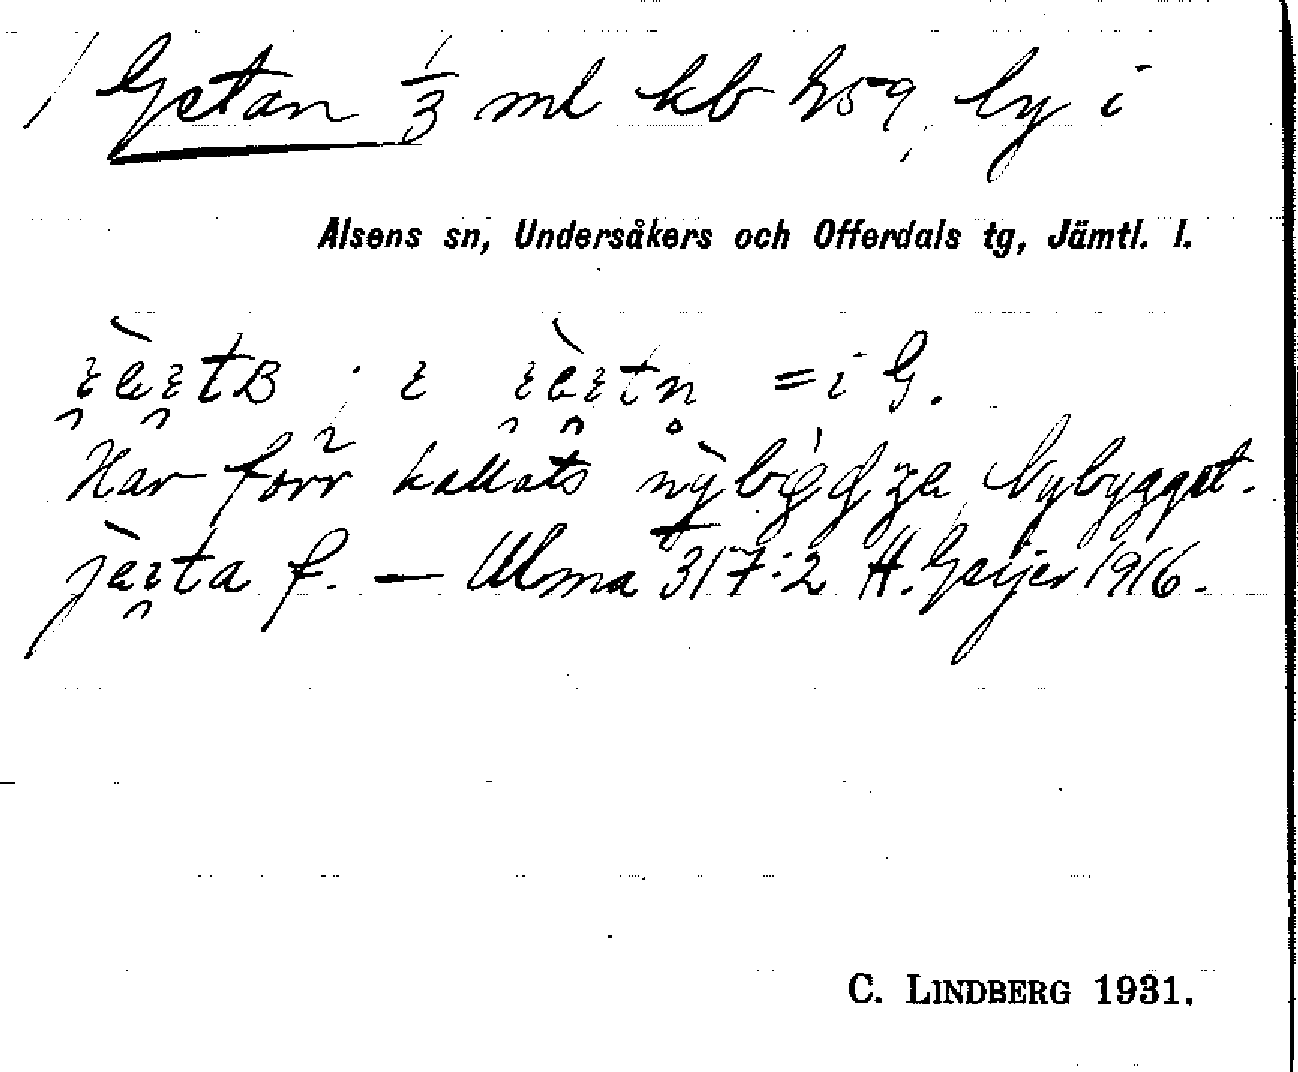 Getan 1/3 ml kb 259, by i
Alsens sn, Undersåkers och Offerdals tg, Jämtl. l.
= i G.
Har förr kallats Nybygget.
jæi̯ta f. — Ulma 317:2 H. Geijer 1916.
C. LINDBERG 1931.